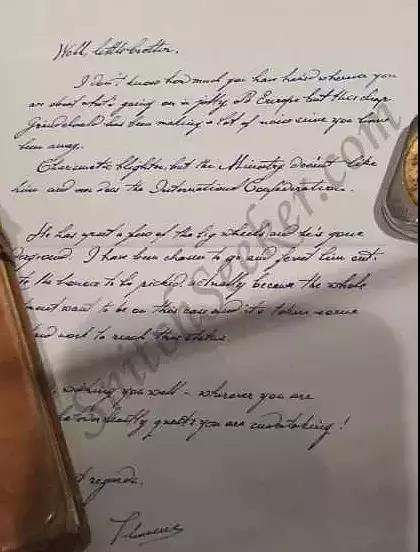 Well, little brother.
I don't know how much you have heard wherever you
are about what's going on in jolly old Europe but this chap
Grindelwald has been making a lot of noise since you have
been away.
Charismatic blighter, but the Ministry doesn't like
him and nor does the International Confederation.
He has upset a few of the big wheels and he's gone
I have been chosen to go and ferret him out.
to be picked, actually because the whole
want to be on this case and it's taken some
hard work to reach this status.
wishing you well - wherever you are
beastly quests you are undertaking!
regards,
Theseus
SnitchSeeker.com